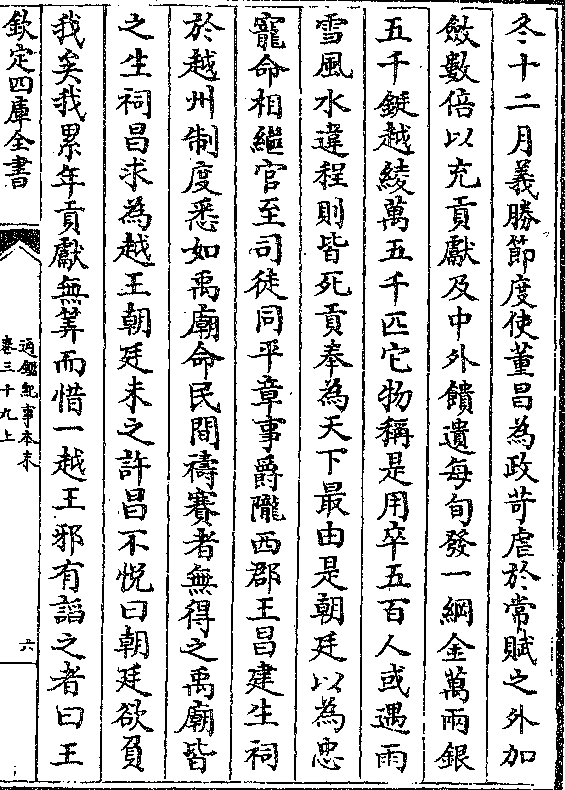 冬十二月義勝節度使董昌為政苛虐於常賦之外加
斂數倍以充貢獻及中外饋遺每旬發一綱金萬兩銀
五千鋌越綾萬五千匹它物稱是用卒五百人或遇雨
雪風水違程則皆死貢奉為天下最由是朝廷以為忠
寵命相繼官至司徒同平章事爵隴西郡王昌建生祠
於越州制度悉如禹廟命民間禱賽者無得之禹廟皆
之生祠昌求為越王朝廷未之許昌不悅曰朝廷欲負
我矣我累年貢獻無筭而惜一越王邪有諂之者曰王
欽定四庫全書
通鑑紀事本末
卷三十九上
六